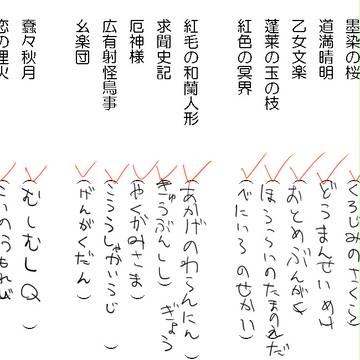 墨染の桜 (くろじめのさくら
道満晴明 (どうまんせいめい
乙女文楽 (おとめぶんがく
蓬莱の玉の枝 (ほうらいのたまのえだ
紅色の冥界 (べにいろのせかい)
紅毛の和蘭人形 (あかげのわらんにんぎょう
求聞史記 (きゅうぶんしし)
厄神様 (やくがみさま)
広有射怪鳥事 (こうゆうしゃかいうじ)
幺楽団 (げんがくだん)
蠢々秋月 (むしむしQ )
恋の埋火 (こいのうもれび